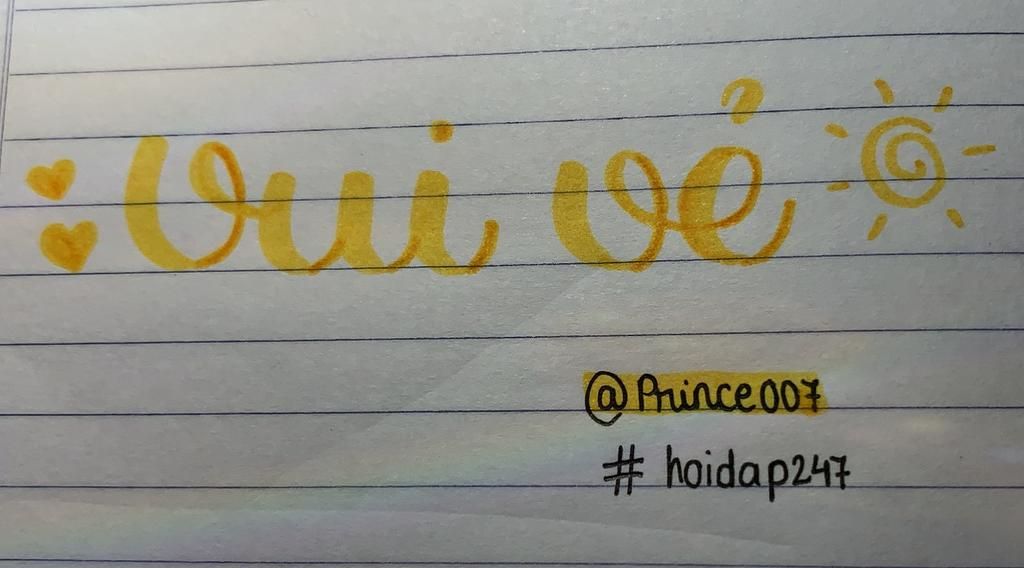 vui vẻ
@Prince007
# hoidap247